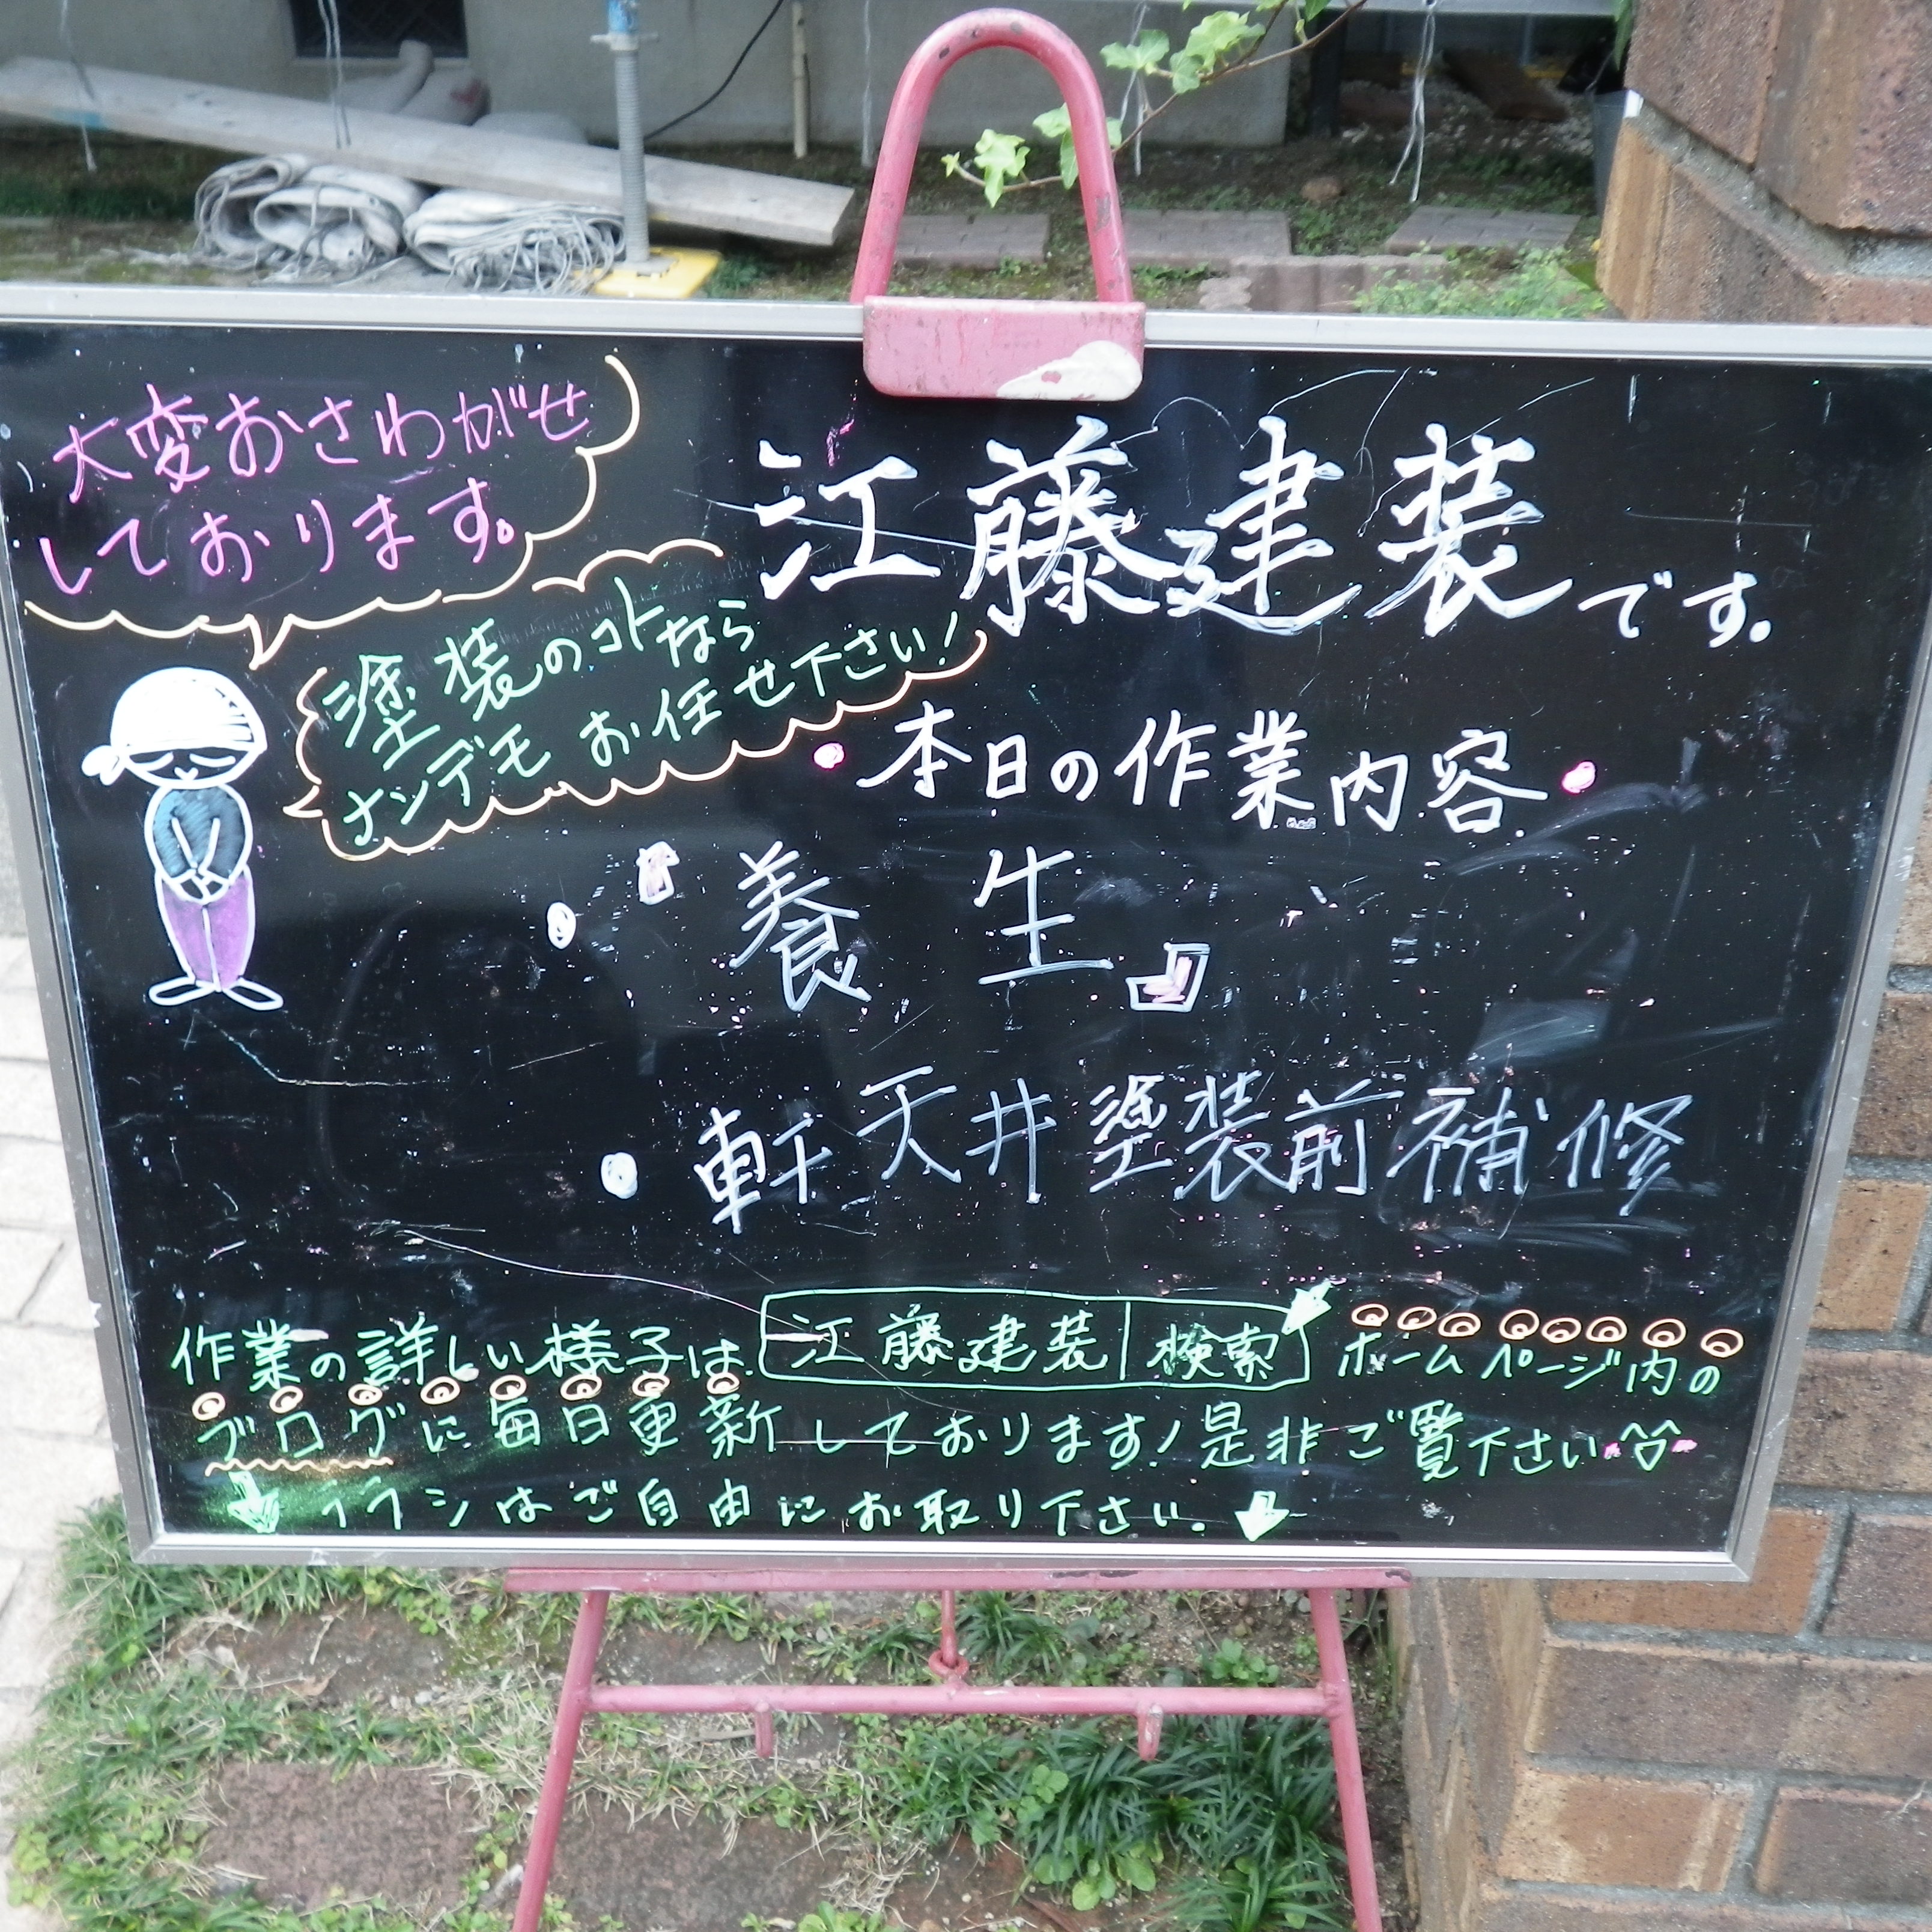 大変おさわがせ
しております。
江藤建装です。
塗装のコトなら
ナンデモお任せ下さい!
・本日の作業内容・
・『養生』
・軒天井塗装前補修
作業の詳しい様子は 江藤建装 検索 ホームページ内の
ブログに毎日更新しております!是非ご覧下さい
チラシはご自由にお取り下さい。